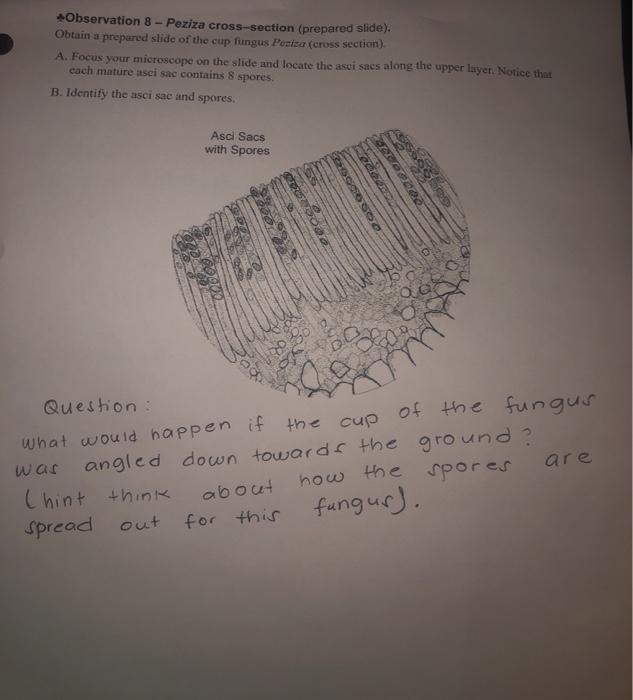 ♣Observation 8 – Peziza cross–section (prepared slide).
Obtain a prepared slide of the cup fungus Peziza (cross section).
A. Focus your microscope on the slide and locate the asci sacs along the upper layer. Notice that
each mature asci sac contains 8 spores.
B. Identify the asci sac and spores.
Asci Sacs
with Spores
Question:
what would happen if the cup of the fungus
was angled down towards the ground?
(hint think about how the spores are
spread out for this fungus).